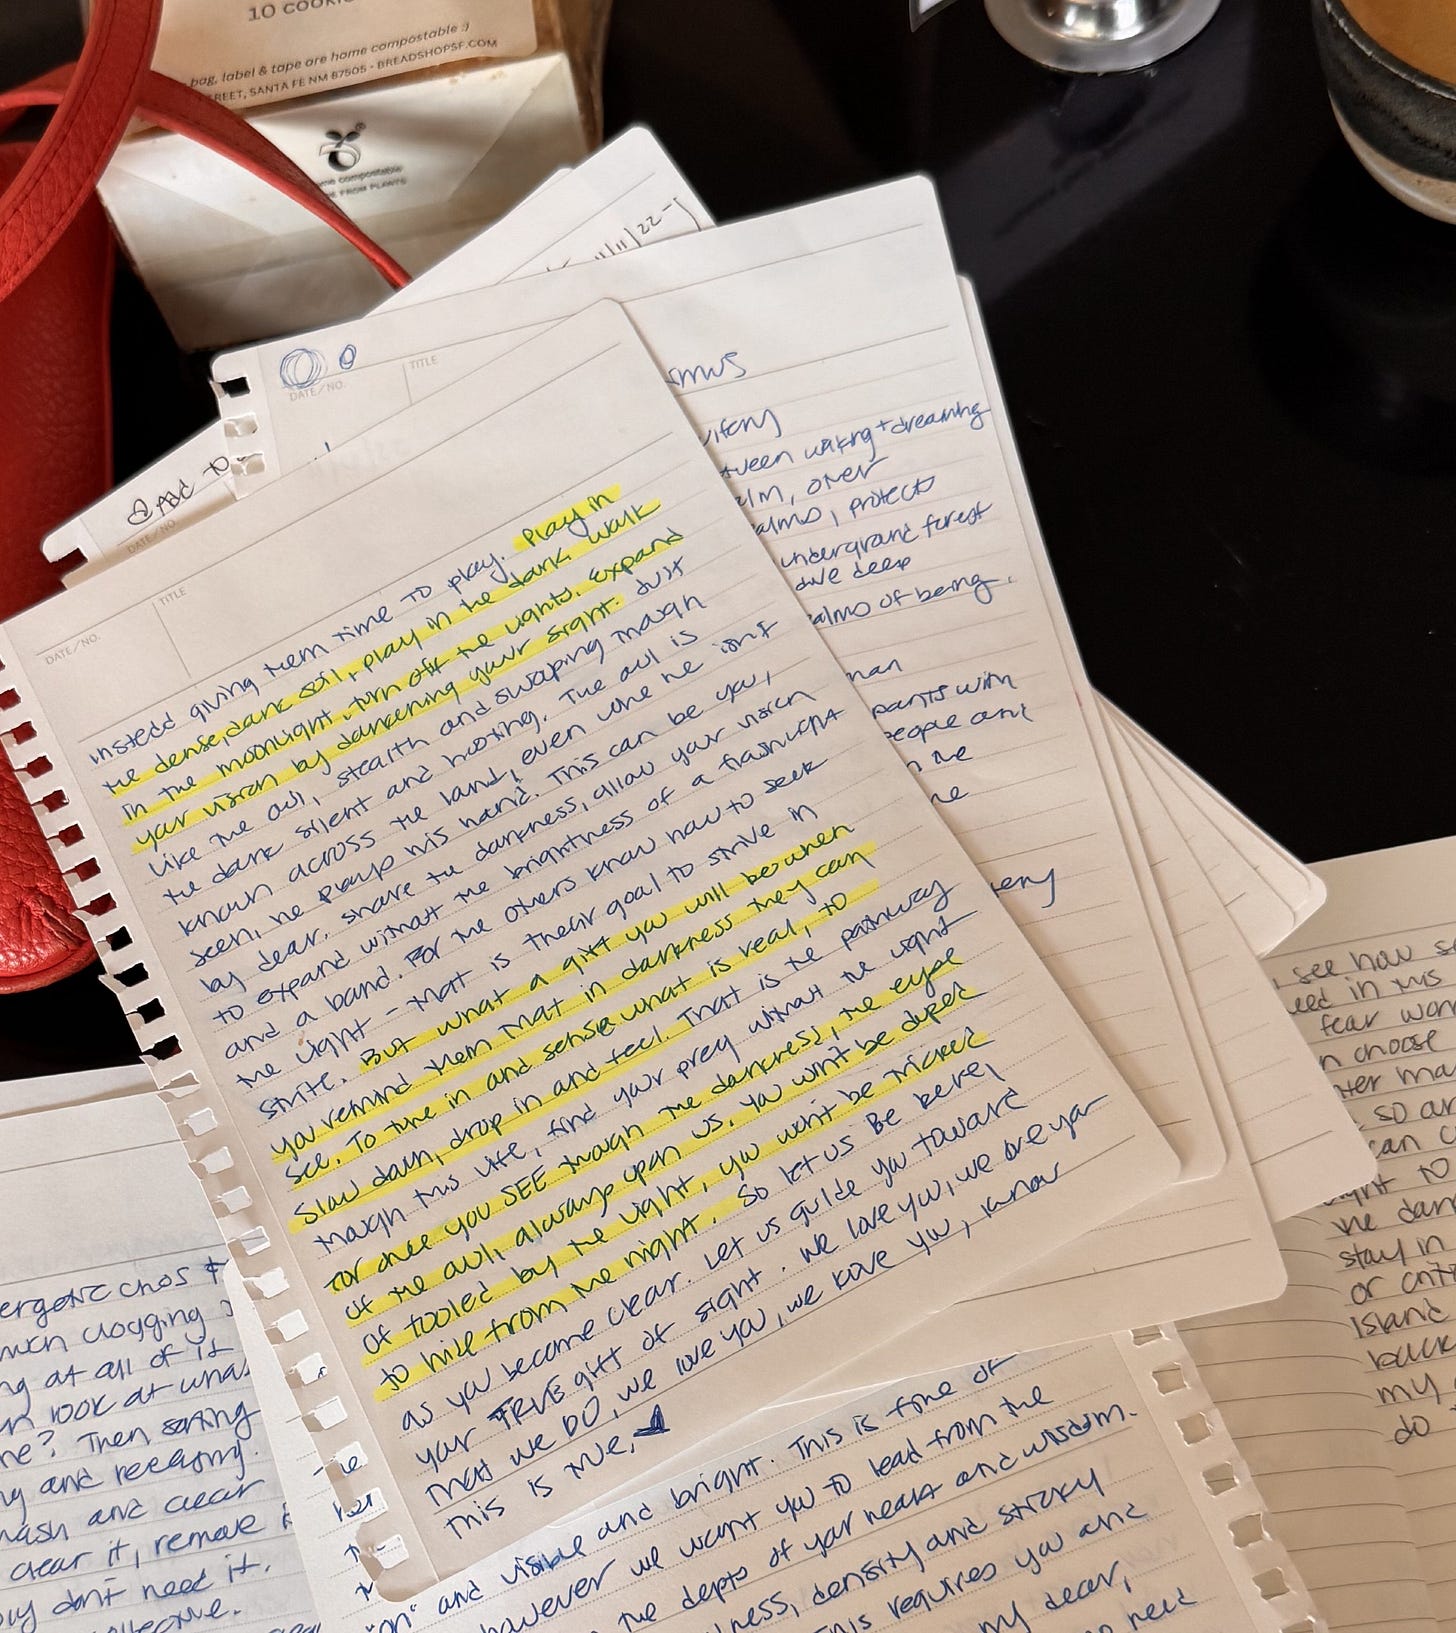 10 COOKI
bag, label & tape are home compostable :)
REET, SANTA FE NM 87505 • BREADSHOPSF.COM
home compostable
FROM PLANTS
11/22
DATE/NO.
TITLE
DATE/NO.
DATE/NO.
TITLE
instead giving them time to play. Play in
the dense, dark soil, play in the dark walk
in the moonlight, turn off the lights. Expand
your vision by darkening your sight. Just
like the owl, stealth and swooping through
the dark silent and hooting. The owl is
known across the land, even while he isn't
seen, he plays his hand. This can be you,
my dear, share the darkness, allow your vision
to expand without the brightness of a flashlight
and a band. For the others know how to seek
the light - that is their goal to strive in
strife. But what a gift you will be when
you remind them that in darkness they can
see. To tune in and sense what is real, to
slow down, drop in and feel. That is the pathway
through this life, find your prey without the light
for once you SEE through the darkness, the eyes
of the owl, always upon us, you won't be duped
or fooled by the light, you won't be tricked
to hide from the night. So let us be here,
as you become clear. Let us guide you toward
your TRUE gift of sight. We love you, we love you
that we DO, we love you, we love you, know
this is true.
tween waking + dreaming
alm, over
alms, protects
underground forest
dive deep
alms of being.
man
pants with
people and
n the
he
ergetic
much clogging
ng at all of it
n look at what
me? Then sorting
ng and
mash and clear
clear it, remove it
don't need it.
"on" and visible and bright. This is fine or
however we want you to lead from the
the depts of your heart and wisdom.
ness, density and sticky
This requires you and
my dear,
need
see how s
eed in this
fear wor
n choose
ter ma
so ar
can c
ight to
the dar
stay in
or
island
back
my
do